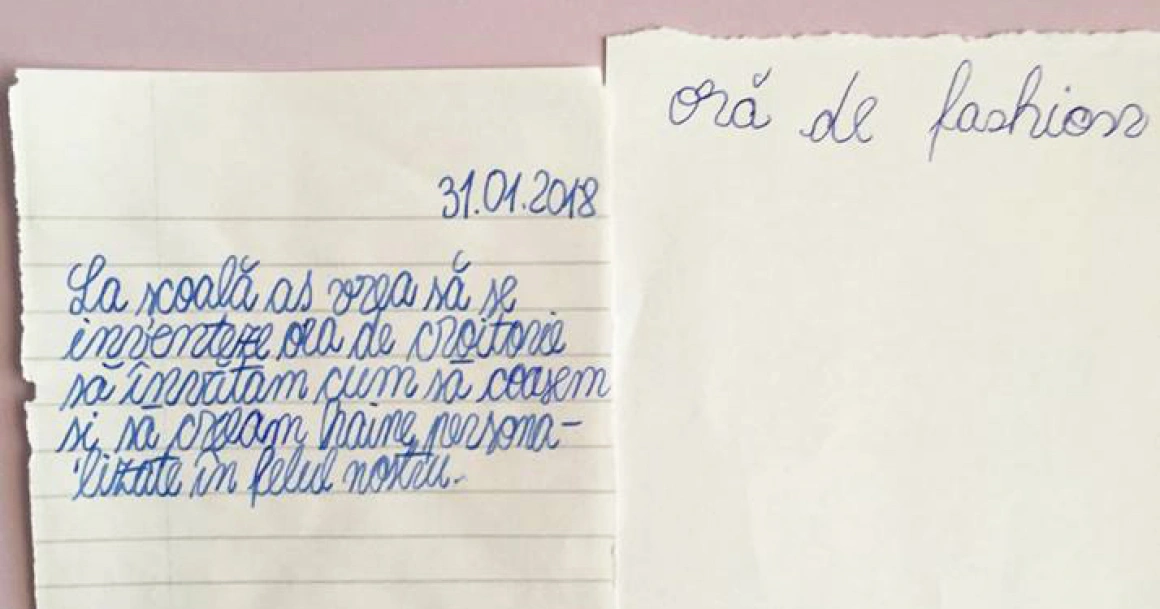 31.01.2018
La școală as vrea să se
inventeze ora de croitorie
să învătăm cum să coasem
si să cream haine persona-
lizate în felul nostru.
oră de fashion